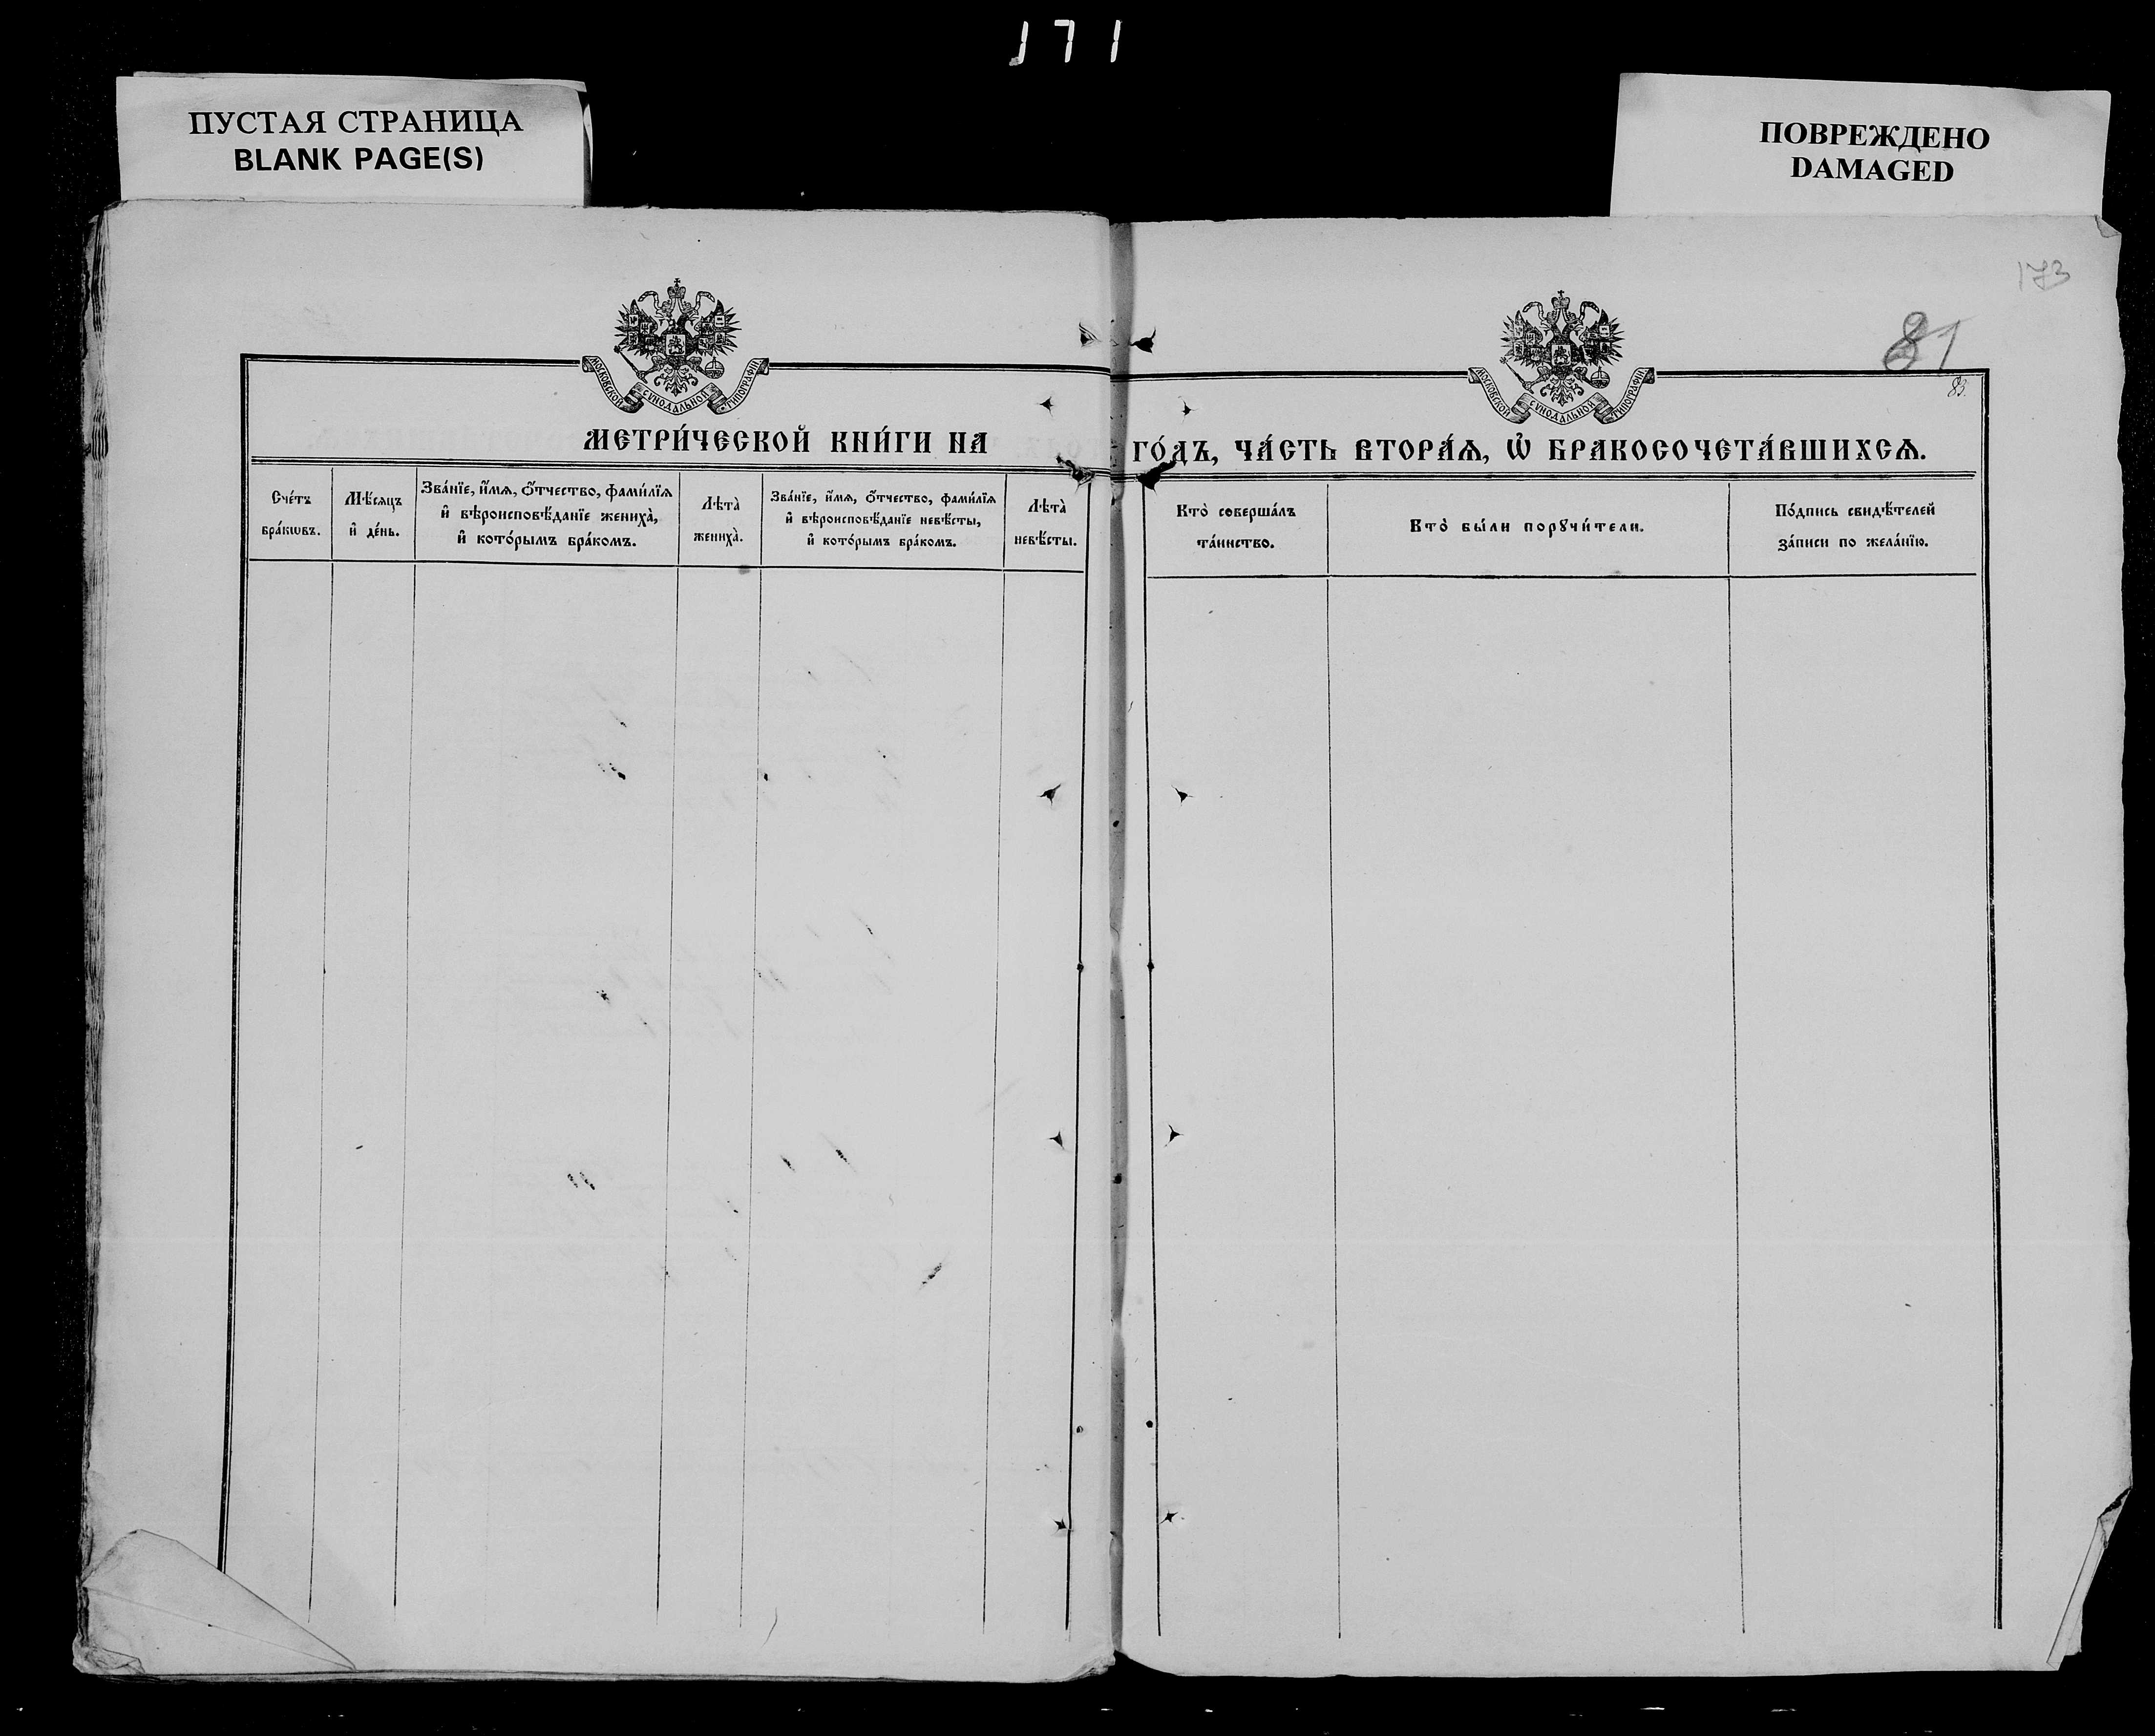 171
ПУСТАЯ СТРАНИЦА
BLANK PAGE(S)
ПОВРЕЖДЕНО
DAMAGED
173
81
83.
МОСКОВСКОЙ СУНОДАЛЬНОЙ ТИПОГРАФІИ
МОСКОВСКОЙ СУНОДАЛЬНОЙ ТИПОГРАФІИ
МЕТРИ́ЧЕСКОЙ КНИ́ГИ НА
ГО́ДЪ, ЧА́СТЬ ВТОРА́Ѧ, Ѽ БРАКОСОЧЕТА́ВШИХСѦ.
Сче́тъ
бра́кѡвъ.
Мѣ́сяцъ
и҆ де́нь.
Зва́нїе, и҆́мѧ, ѻ҆́тчество, фами́лїѧ
и҆ вѣроисповѣ́данїе жениха̀,
и҆ кото́рымъ бра́комъ.
Лѣта̀
жениха̀.
Зва́нїе, и҆́мѧ, ѻ҆́тчество, фами́лїѧ
и҆ вѣроисповѣ́данїе невѣ́сты,
и҆ кото́рымъ бра́комъ.
Лѣта̀
невѣ́сты.
Кто̀ соверша́лъ
та́инство.
Кто̀ бы́ли порꙋчи́тели.
По́дпись свидѣ́телей
за́писи по жела́нїю.